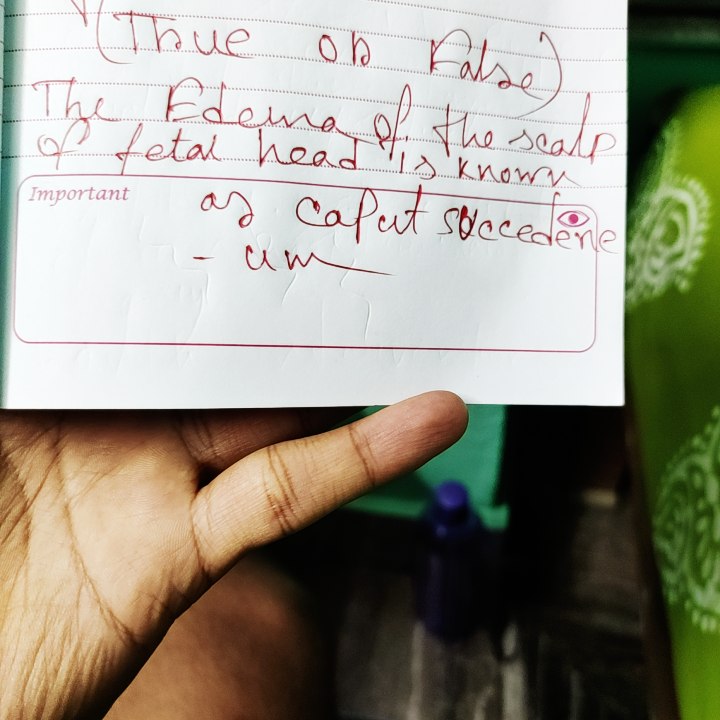 (True or False)
The Edema of the scalp
of fetal head is known
Important
as caput succedene
- um